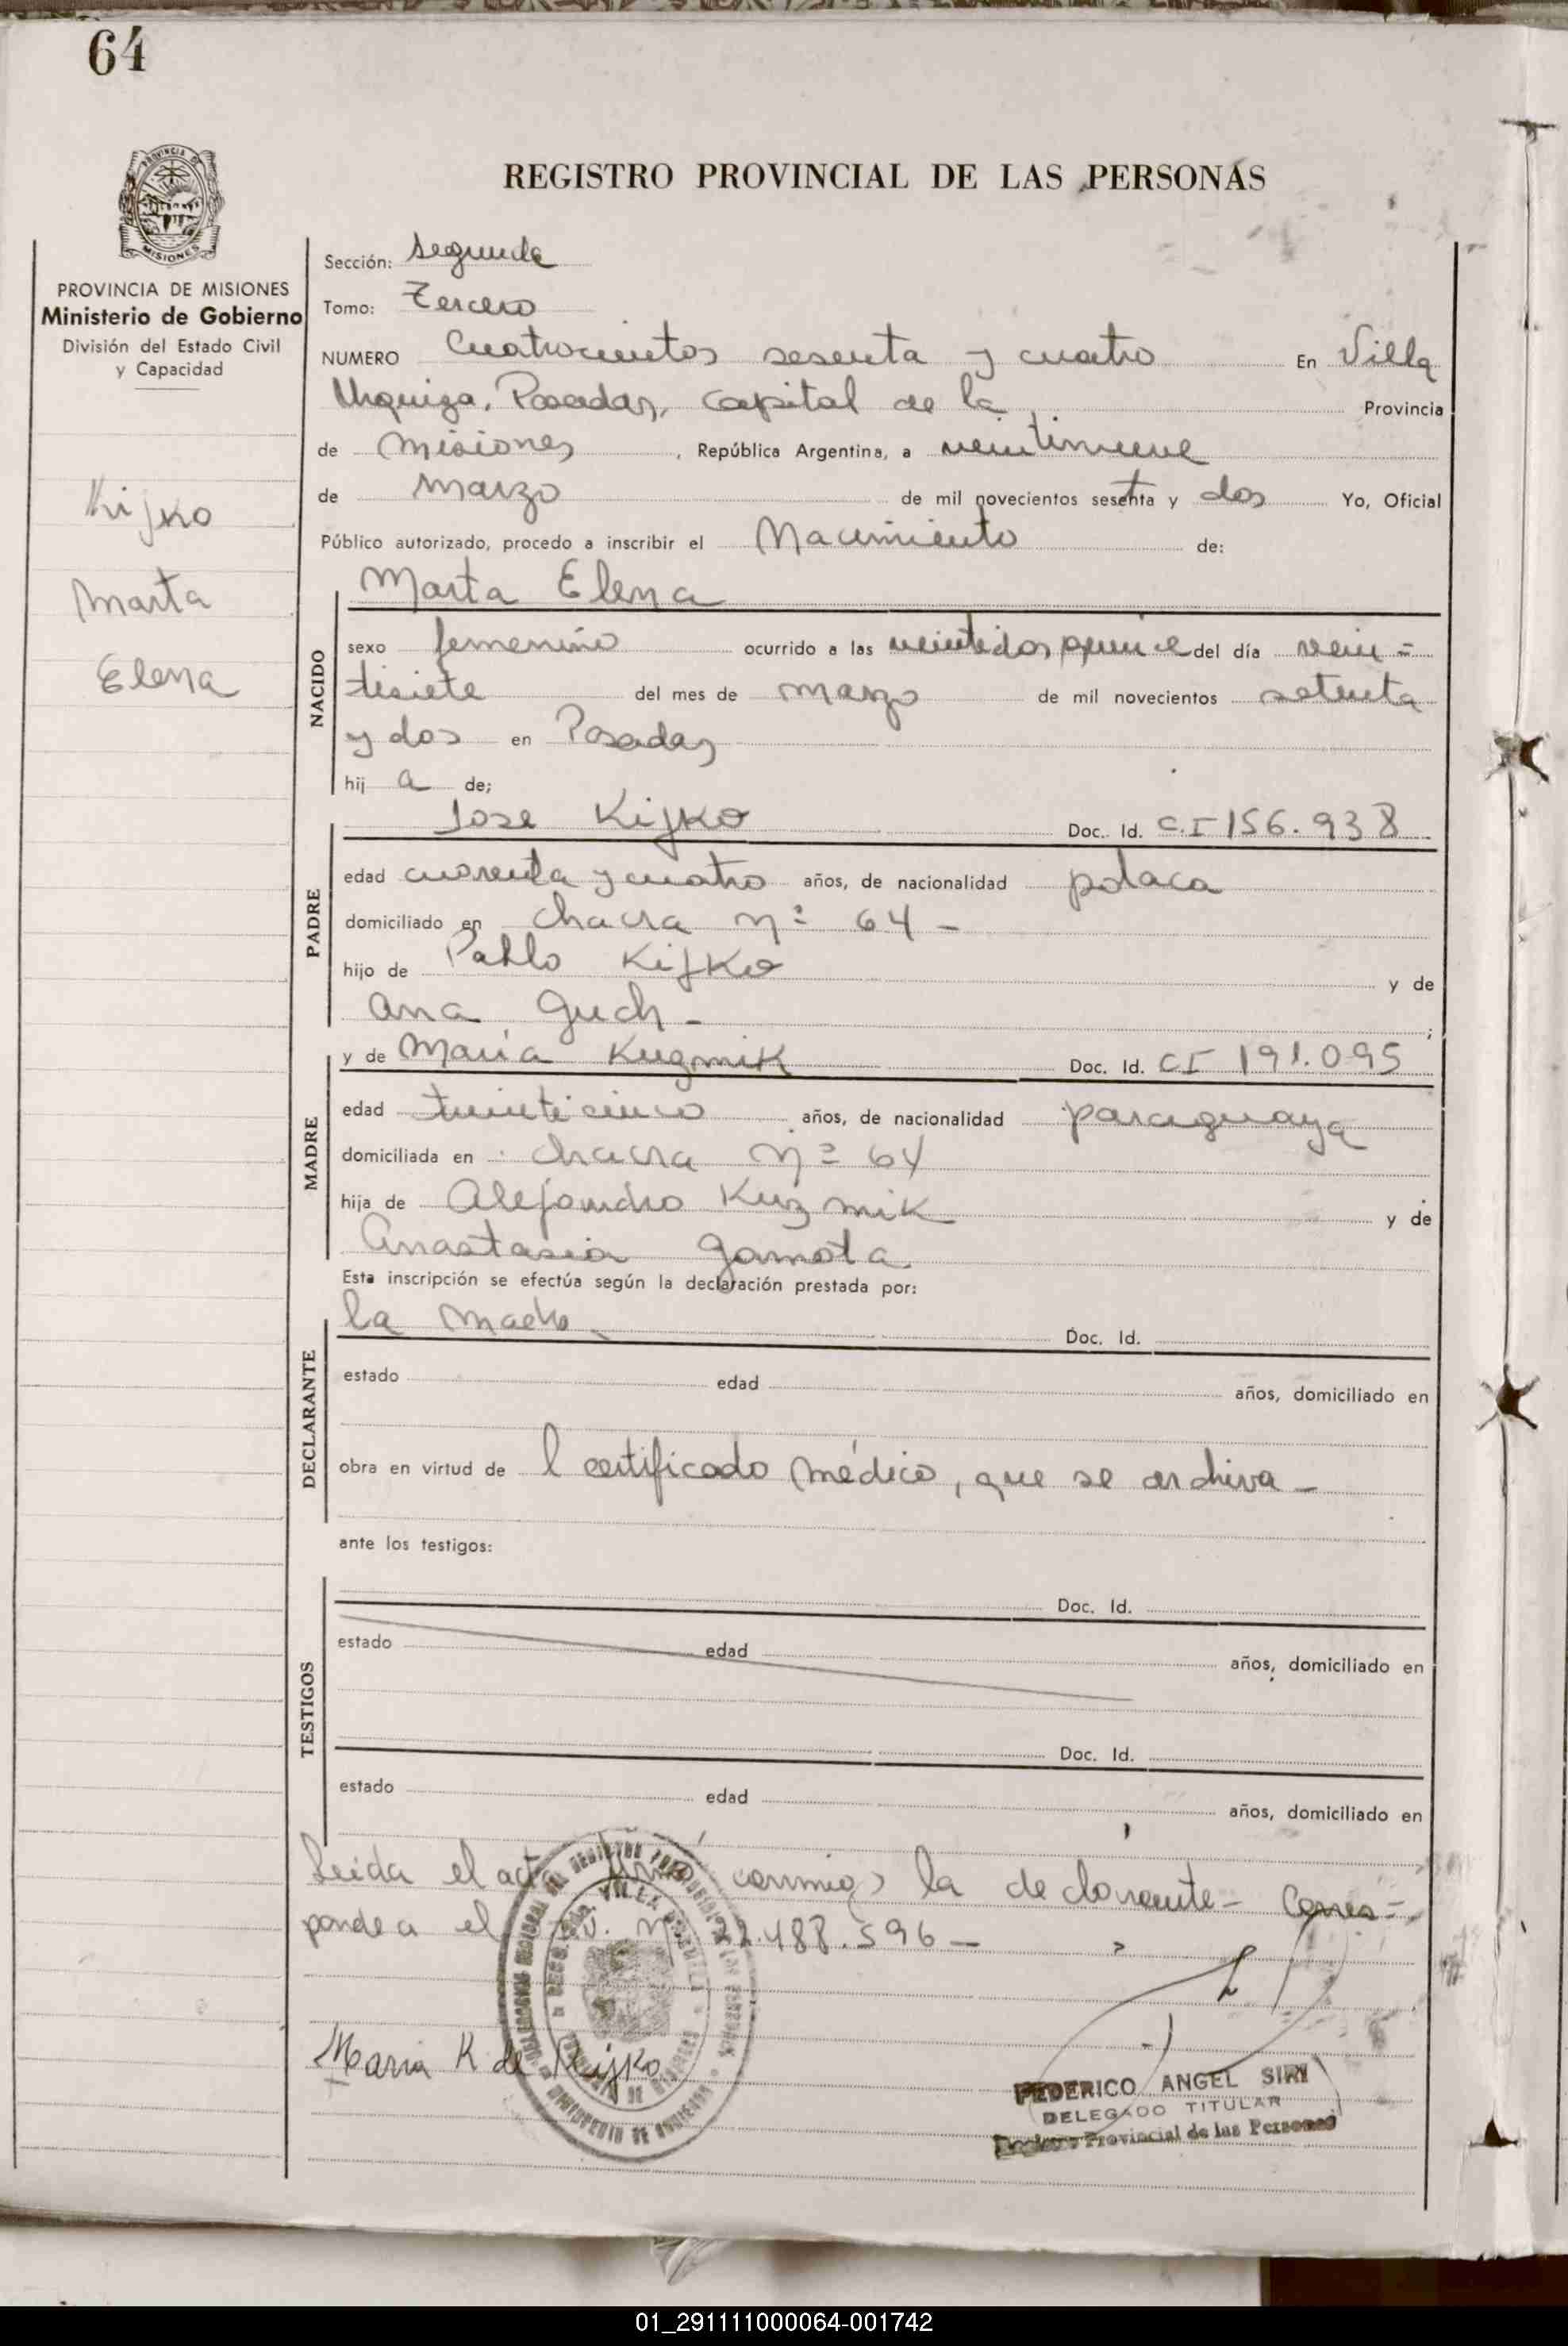 64
REGISTRO PROVINCIAL DE LAS PERSONAS
PROVINCIA DE
MISIONES
PROVINCIA DE MISIONES
Ministerio de Gobierno
División del Estado Civil
y Capacidad
Kijko
Marta
Elena
Sección: Segunda
Tomo: Tercero
NUMERO Cuatrocientos sesenta y cuatro En Villa
Urquiza, Posadas, capital de la Provincia
de Misiones, República Argentina, a veintinueve
de Marzo de mil novecientos sesenta y dos Yo, Oficial
Público autorizado, procedo a inscribir el Nacimiento de:
Marta Elena
NACIDO
sexo femenino ocurrido a las veintidos quince del día vein=
tisiete del mes de marzo de mil novecientos setenta
y dos en Posadas
hija de;
PADRE
Jose Kijko Doc. Id. C.I 156.938
edad cuarenta y cuatro años, de nacionalidad polaca
domiciliado en chacra nº 64 -
hijo de Pablo Kijko y de
Ana Guch - ;
MADRE
y de María Kuzmik Doc. Id. CI 191.095
edad años, de nacionalidad paraguaya
domiciliada en chacra nº 64
hija de Alejandro Kuzmik y de
Anastasia Gamota
Esta inscripción se efectúa según la declaración prestada por:
DECLARANTE
la madre Doc. Id.
estado edad años, domiciliado en
obra en virtud del certificado médico, que se archiva -
ante los testigos:
TESTIGOS
Doc. Id.
estado edad años, domiciliado en
Doc. Id.
estado edad años, domiciliado en
Leida el acta conmigo la declarante - Corres=
ponde a el nº 22.488.596 -
Maria K de Kijko
FEDERICO ANGEL SIRI
DELEGADO TITULAR
Registro Provincial de las Personas
01_291111000064-001742